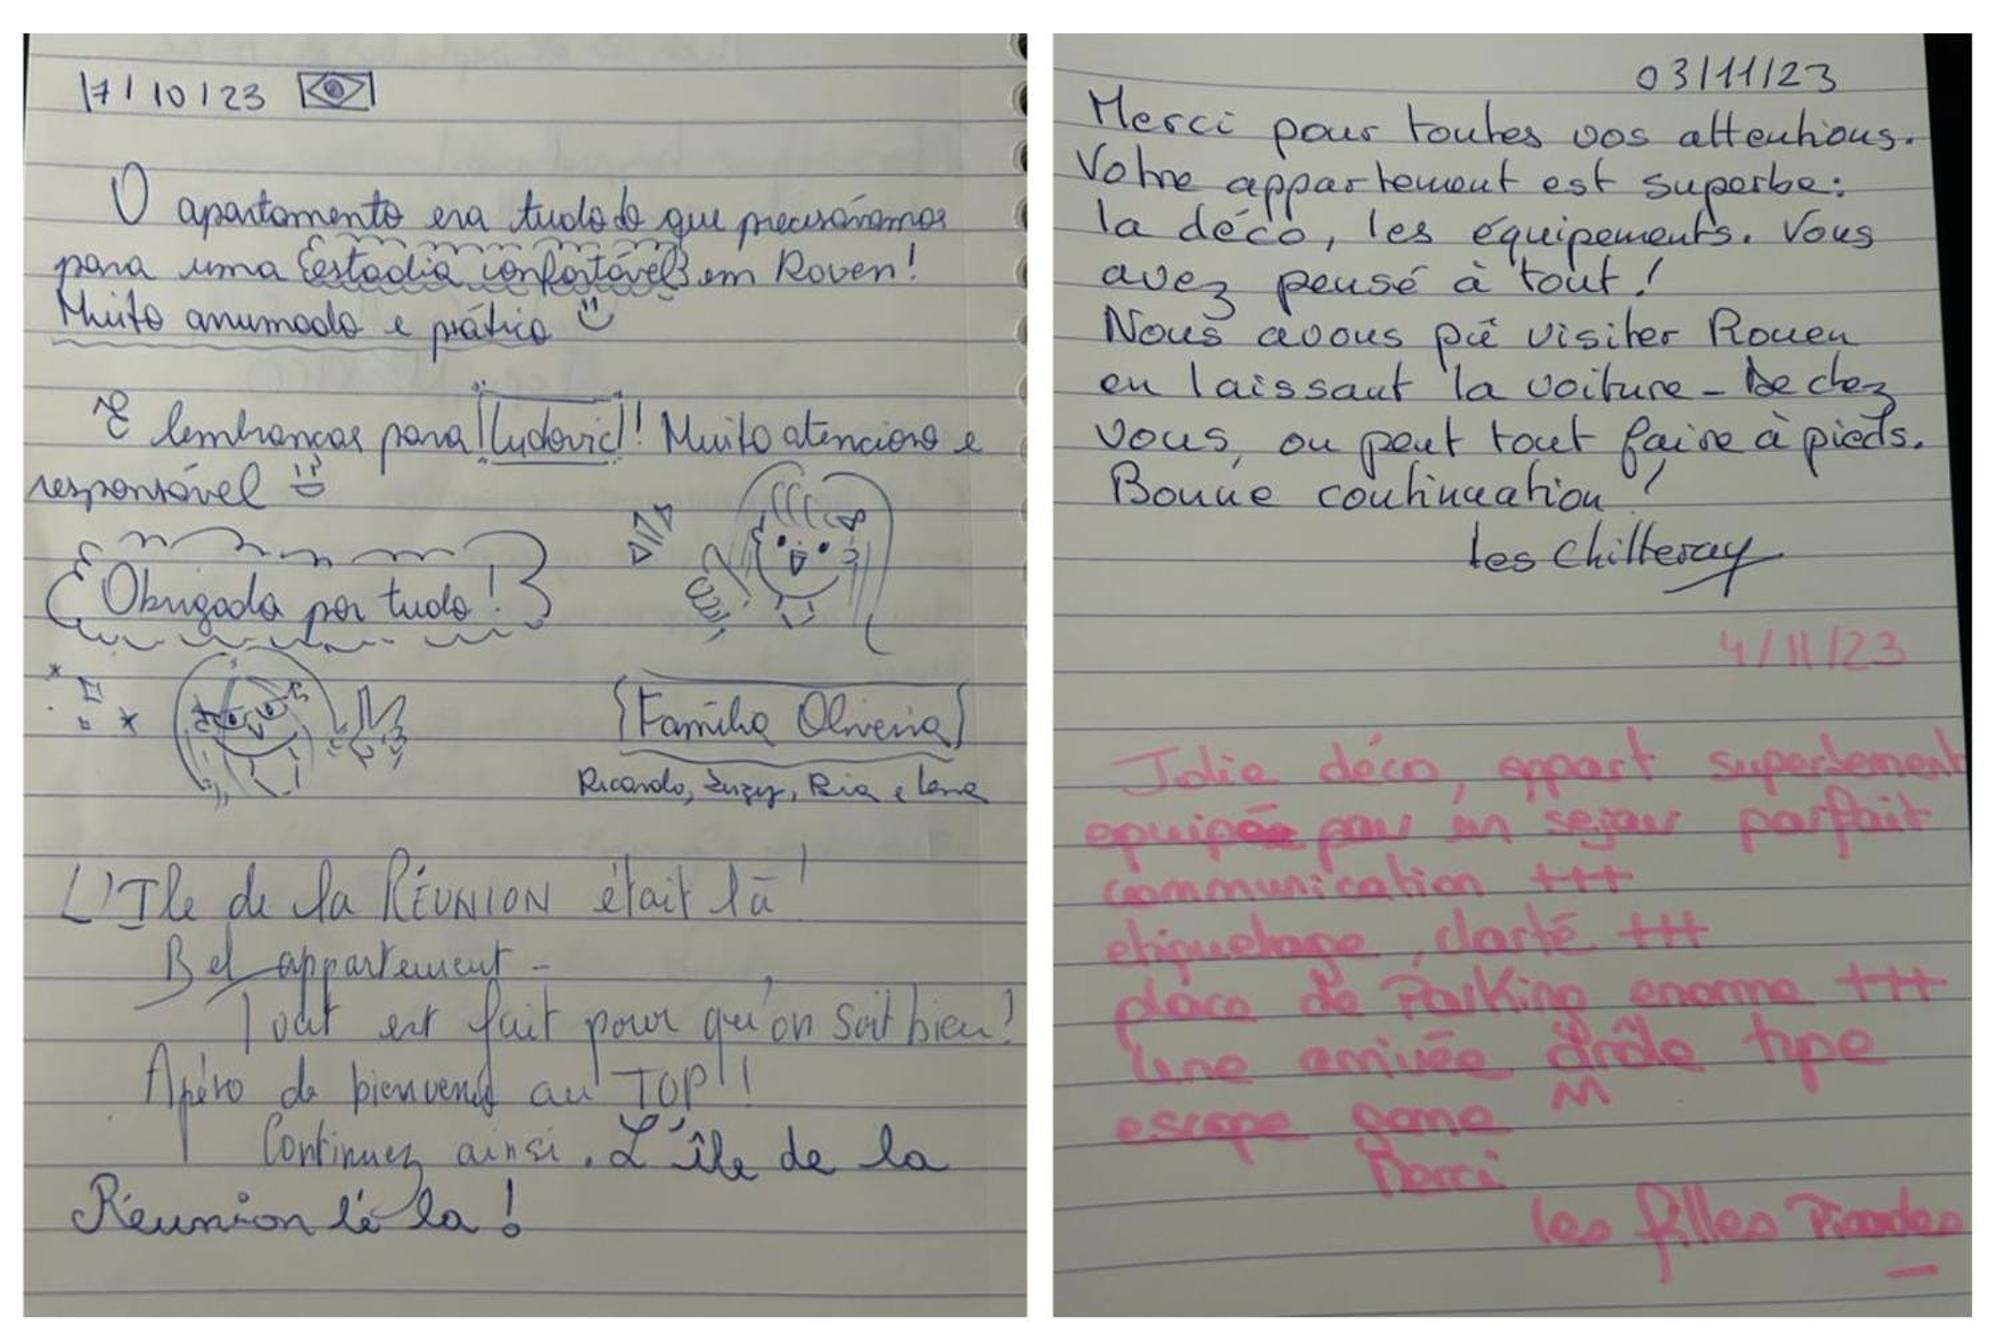 17/10/23
O apartamento era tudo do que precisávamos
para uma estadia confortável em Rouen!
Muito arrumado e prático
E lembranças para Ludovic! Muito atencioso e
responsável
Obrigada por tudo!
Família Oliveira
Ricardo, Suzy, Bia e Lena
L'Ile de la RÉUNION était là!
Bel appartement -
Tout est fait pour qu'on soit bien!
Apéro de bienvenu au TOP!!
Continuez ainsi. L'île de la
Réunion lé la!
03/11/23
Merci pour toutes vos attentions.
Votre appartement est superbe:
la déco, les équipements. Vous
avez pensé à tout!
Nous avons pû visiter Rouen
en laissant la voiture - De chez
vous, on peut tout faire à pieds.
Bonne continuation!
Les
4/11/23
Jolie déco, appart superbement
equipée pour un sejour parfait
communication +++
etiquetage, clarté +++
place de Parking enorme +++
Une arrivée drôle type
escape game
Merci
les filles Picardes